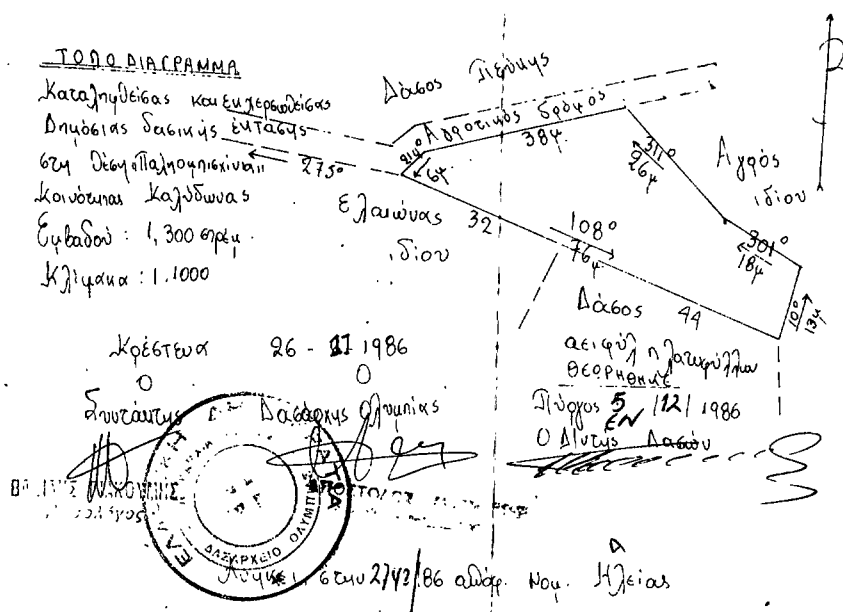 ΤΟΠΟΔΙΑΓΡΑΜΜΑ
Καταληφθείσας και εκχερσωθείσας
Δημόσιας δασικής έκτασης
στη θέση "
Κοινότητας Καλύδωνας
Εμβαδού : 1,300 στρέμ.
Κλίμακα : 1.1000
Δάσος Πεύκης
Αγροτικός δρόμος
384
214°
64
275°
311°
26μ
Αγρός
ιδίου
Ελαιώνας
ιδίου
32
108°
76μ
301°
18μ
10°
13μ
44
Δάσος
αειφύλ πλατυφύλλων
Κρέστενα 26 - 11 1986
Ο Ο
Συντάκτης Δασάρχης Ολυμπίας
ΘΕΩΡΗΘΗΚΕ
Πύργος 5 /12/ 1986
ΕΝ
Ο Δ/ντής Δασών
ΕΛΛΗΝΙΚΗ
ΔΑΣΑΡΧΕΙΟ ΟΛΥΜΠΙΑΣ
στην 2742/86 απόφ. Νομ. Ηλείας